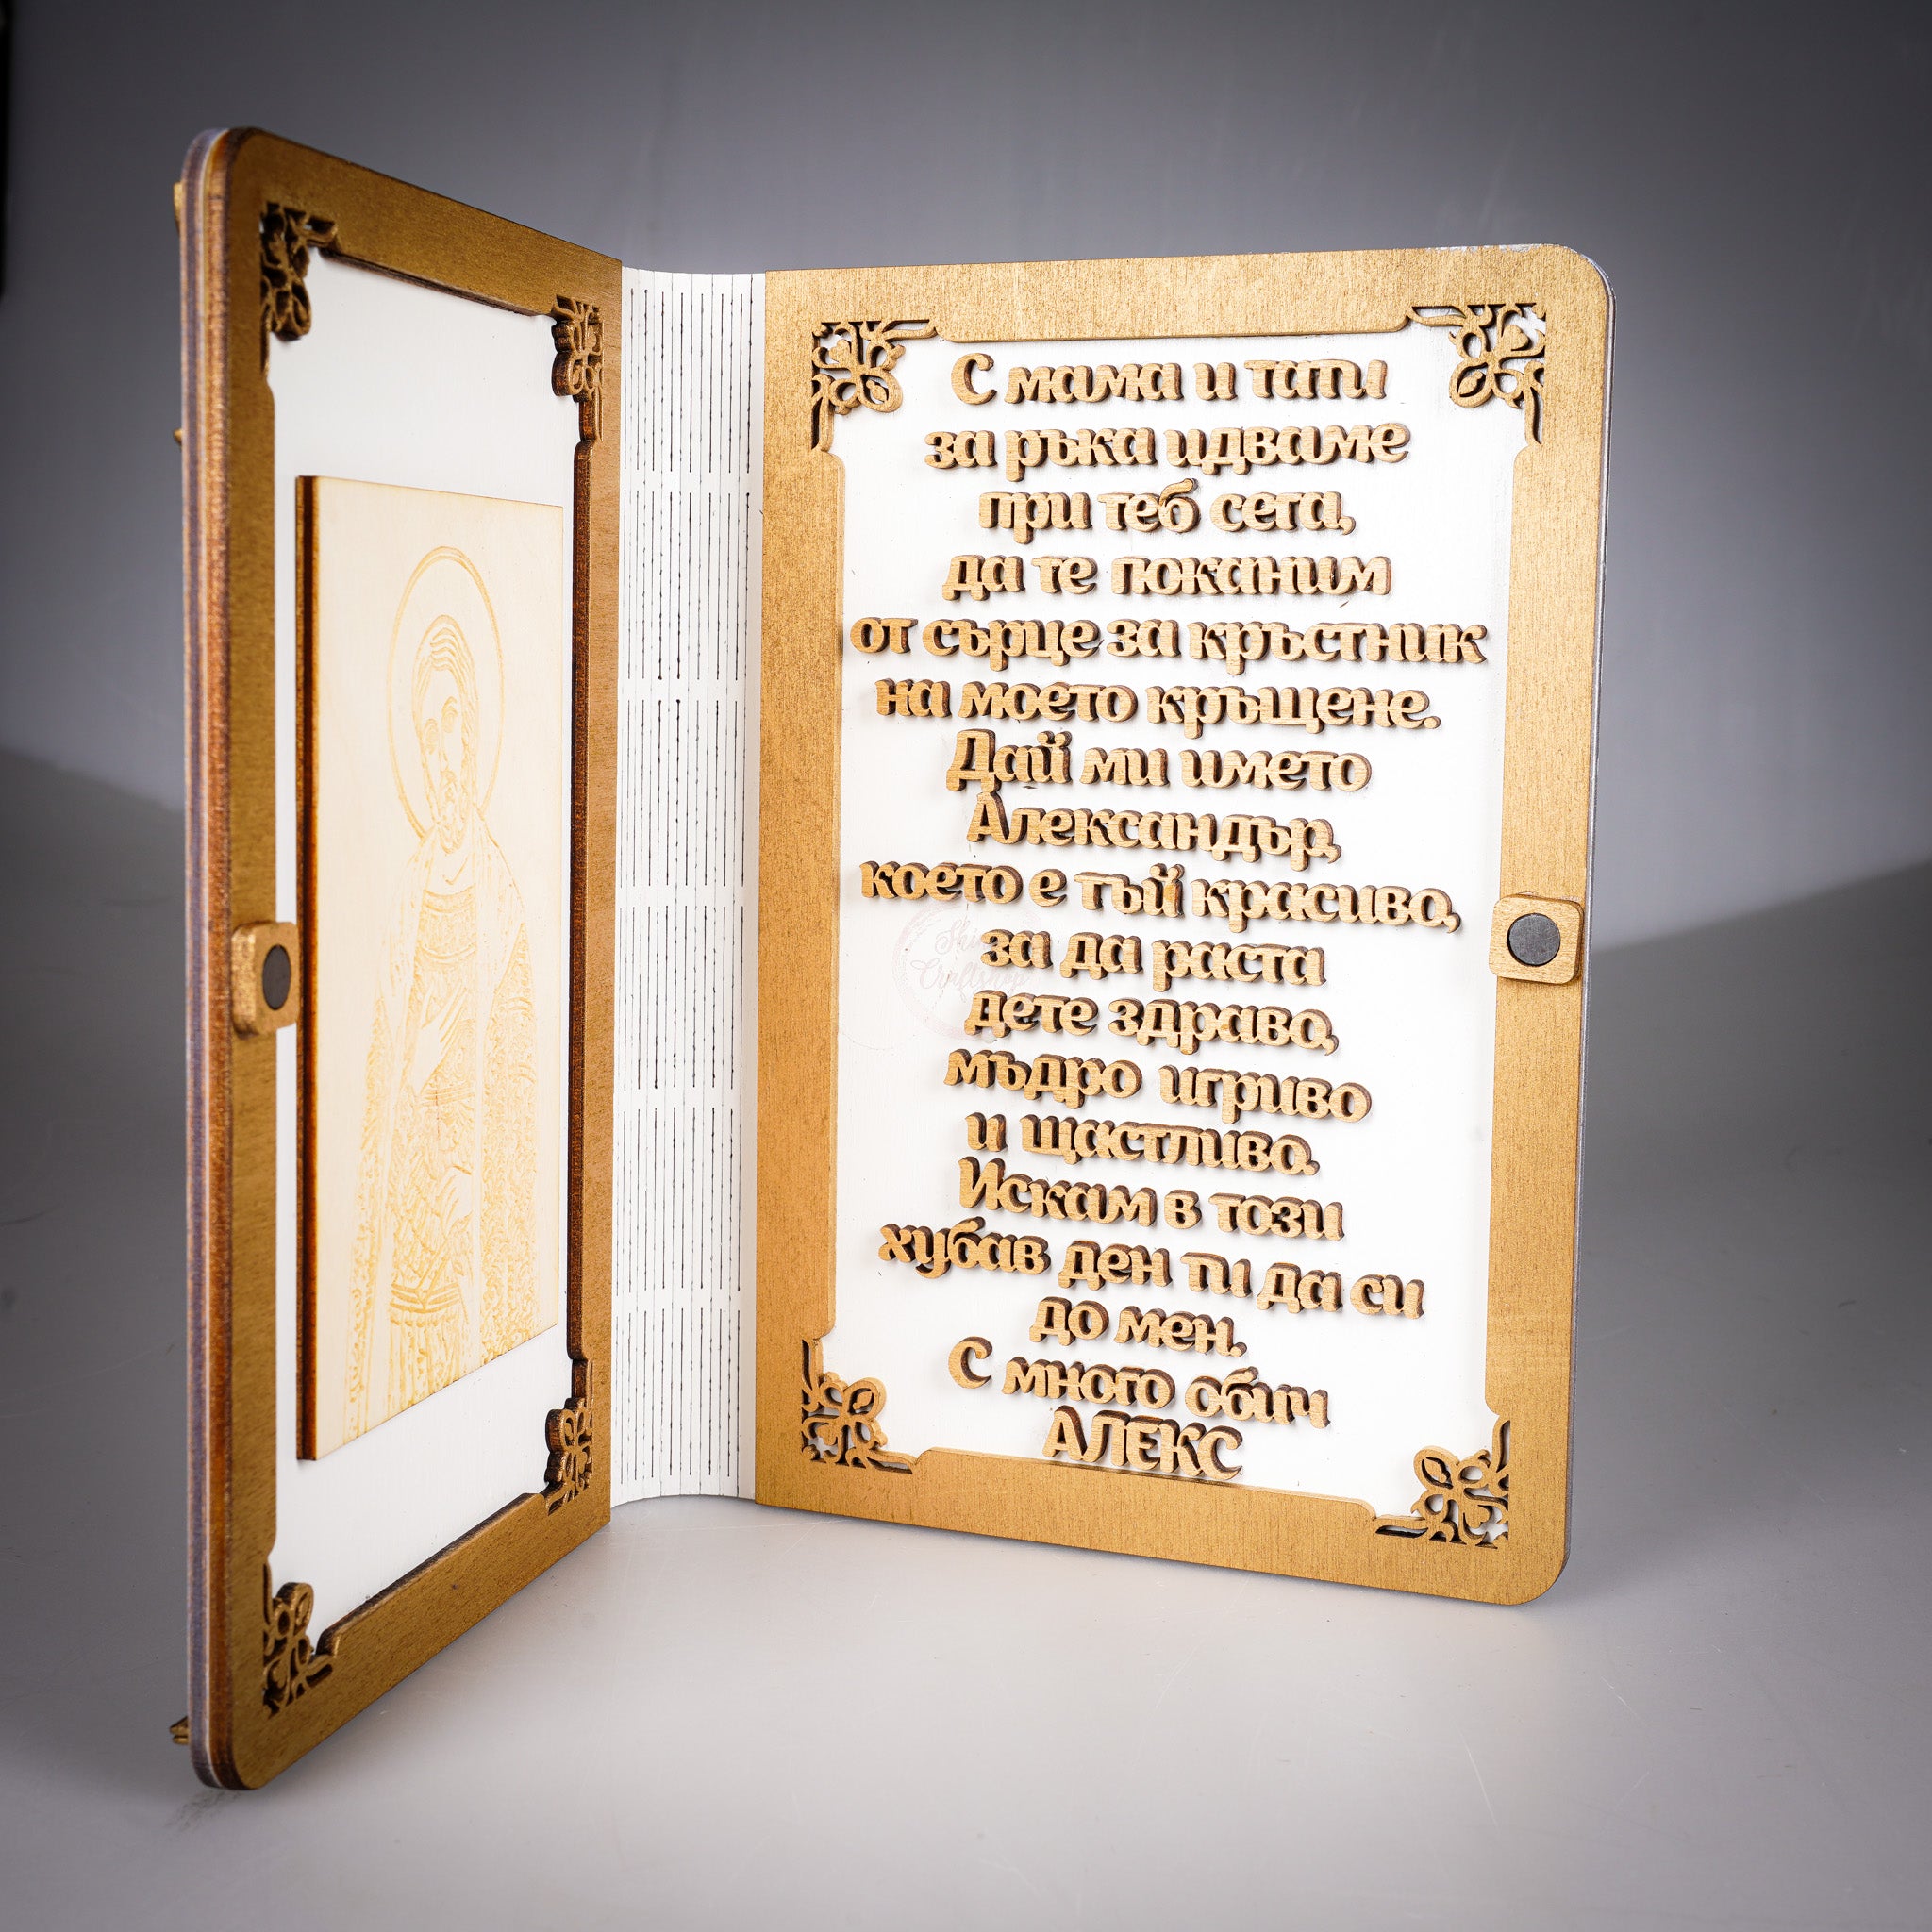 С мама и тати
за ръка идваме
при теб сега,
да те поканим
от сърце за кръстник
на моето кръщене.
Дай ми името
Александър,
което е тъй красиво,
за да раста
дете здраво,
мъдро игриво
и щастливо.
Искам в този
хубав ден ти да си
до мен.
С много обич
АЛЕКС